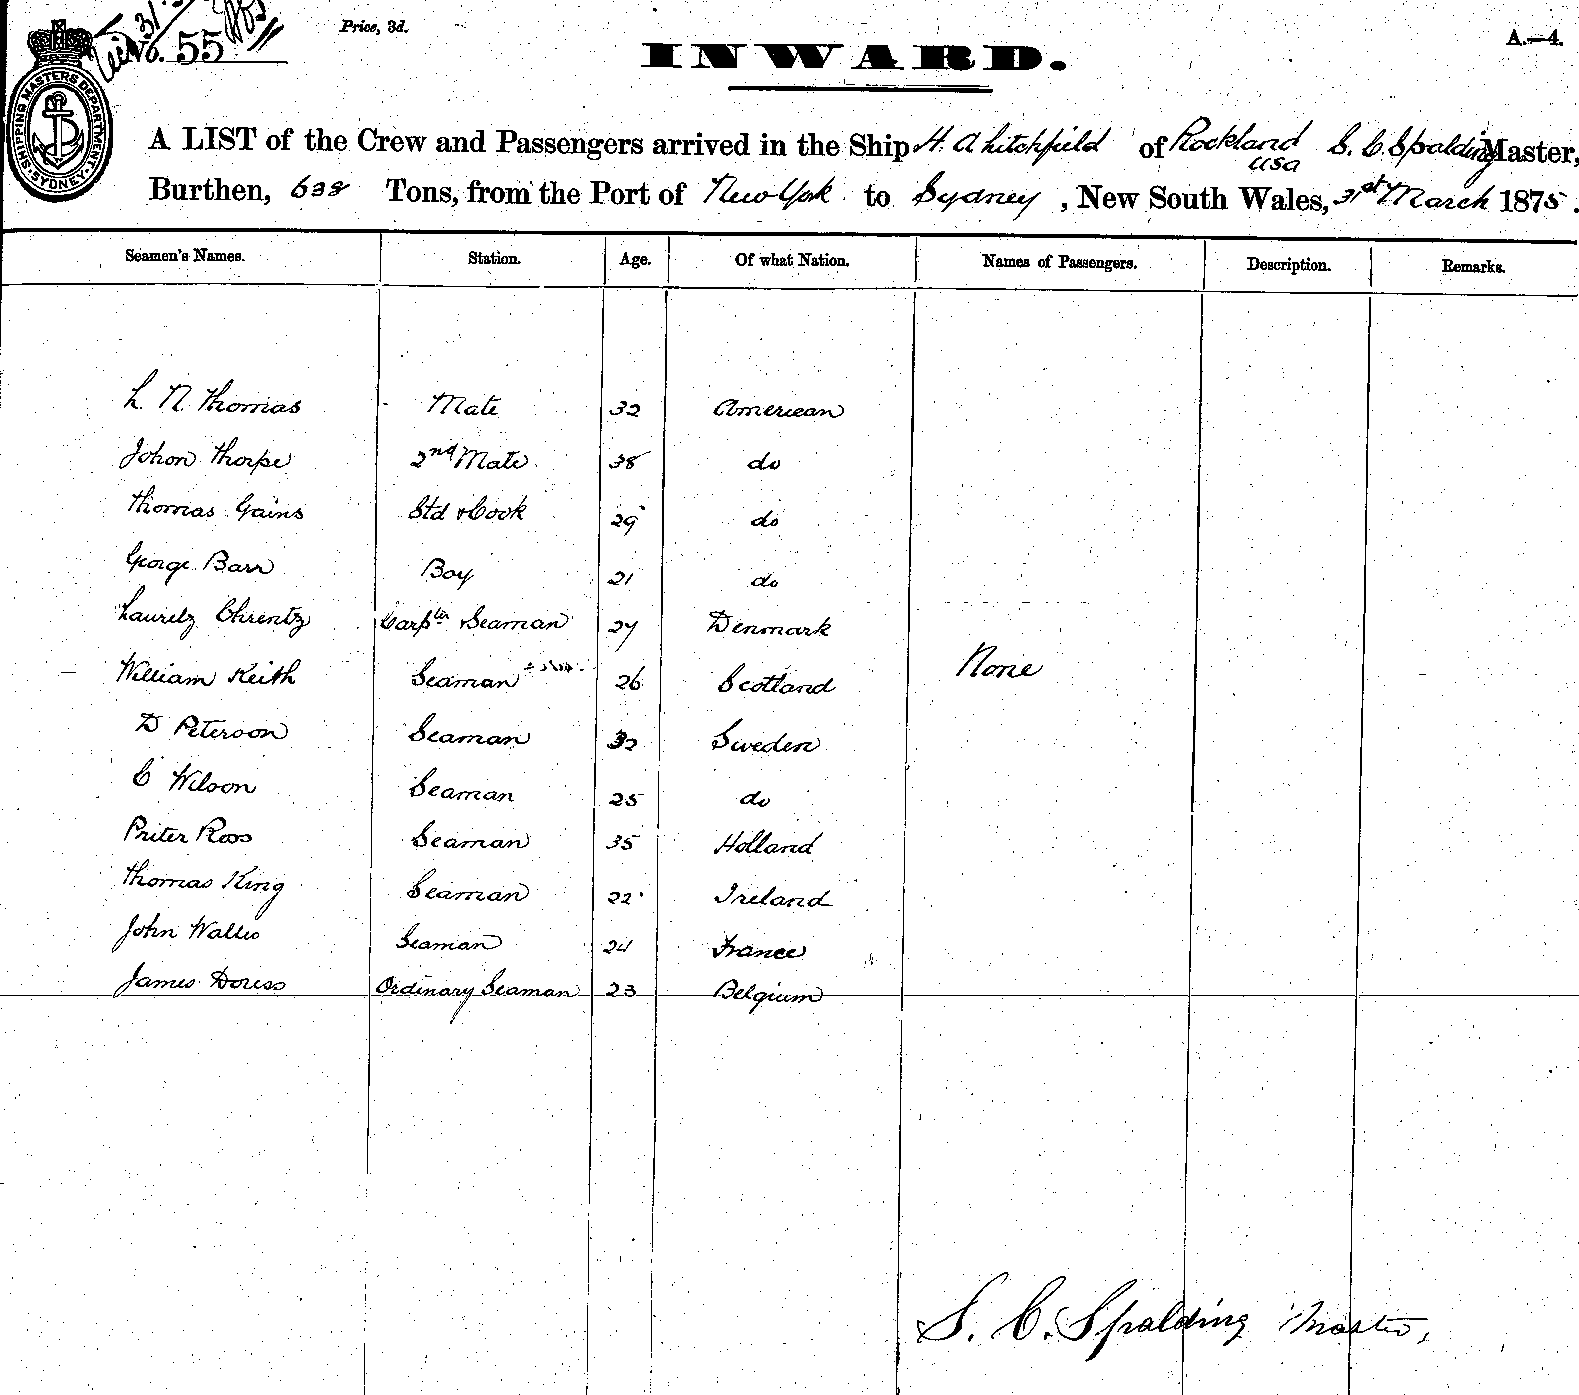 No. 55
Price, 3d.
A.—4.
INWARD.
SHIPPING MASTERS DEPARTMENT SYDNEY
A LIST of the Crew and Passengers arrived in the Ship H. A Litchfield of Rockland USA S. C. Spalding Master,
Burthen, 638 Tons, from the Port of New York to Sydney, New South Wales, 31st March 1875.
Seamen's Names. Station. Age. Of what Nation. Names of Passengers. Description. Remarks.
L. N. Thomas Mate 32 American
John Thorpe 2nd Mate 38 do
Thomas Gains Std & Cook 29 do
George Barr Boy 21 do
Lauritz Ehrentz Carpter & Seaman 27 Denmark
William Keith Seaman 26 Scotland None
D Peterson Seaman 32 Sweden
C Wilson Seaman 25 do
Priter Ross Seaman 35 Holland
Thomas King Seaman 22 Ireland
John Wallis Seaman 24 France
James Doress Ordinary Seaman 23 Belgium
S. C. Spalding Master,